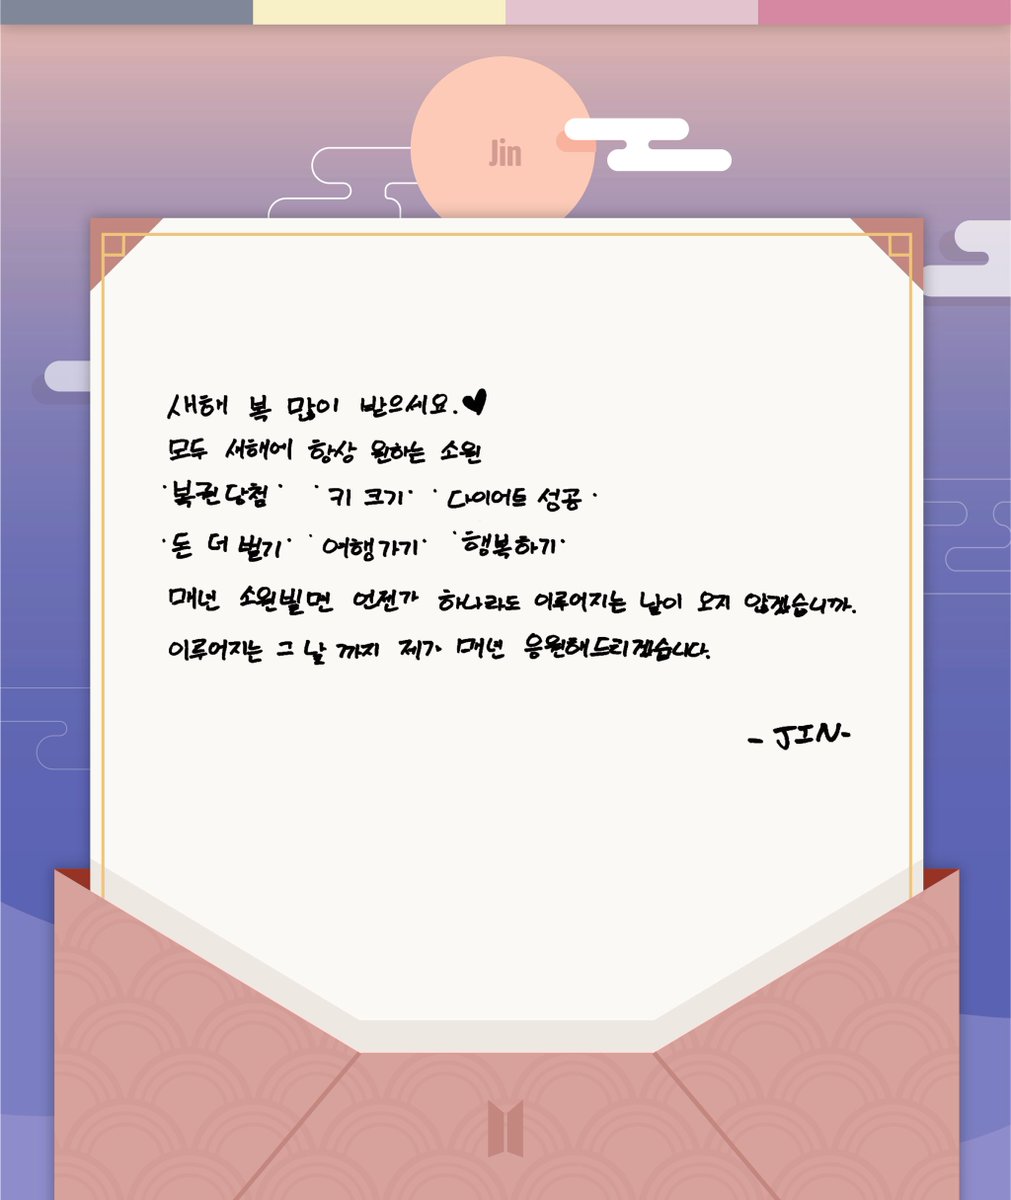 Jin
새해 복 많이 받으세요.♥
모두 새해에 항상 원하는 소원
'복권당첨' '키 크기' '다이어트 성공'
'돈 더 벌기' '여행가기' '행복하기'
매년 소원빌면 언젠가 하나라도 이루어지는 날이 오지 않겠습니까.
이루어지는 그 날 까지 제가 매년 응원해드리겠습니다.
- JIN-